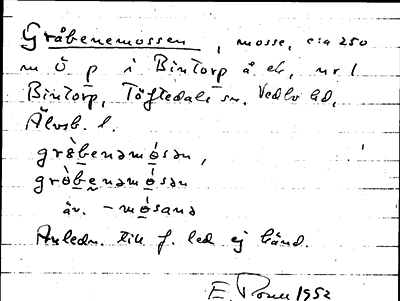 Gråbenemossen, mosse, c:a 250
m Ö p i Bintorp å ek, nr 1
Bintorp, Töftedals sn, Vedbo hd,
Älvsb. l.
grò̀benəmósən,
grò̀benəmósən
äv. -mósanə
Anledn. till f. led ej känd.
E. 1952